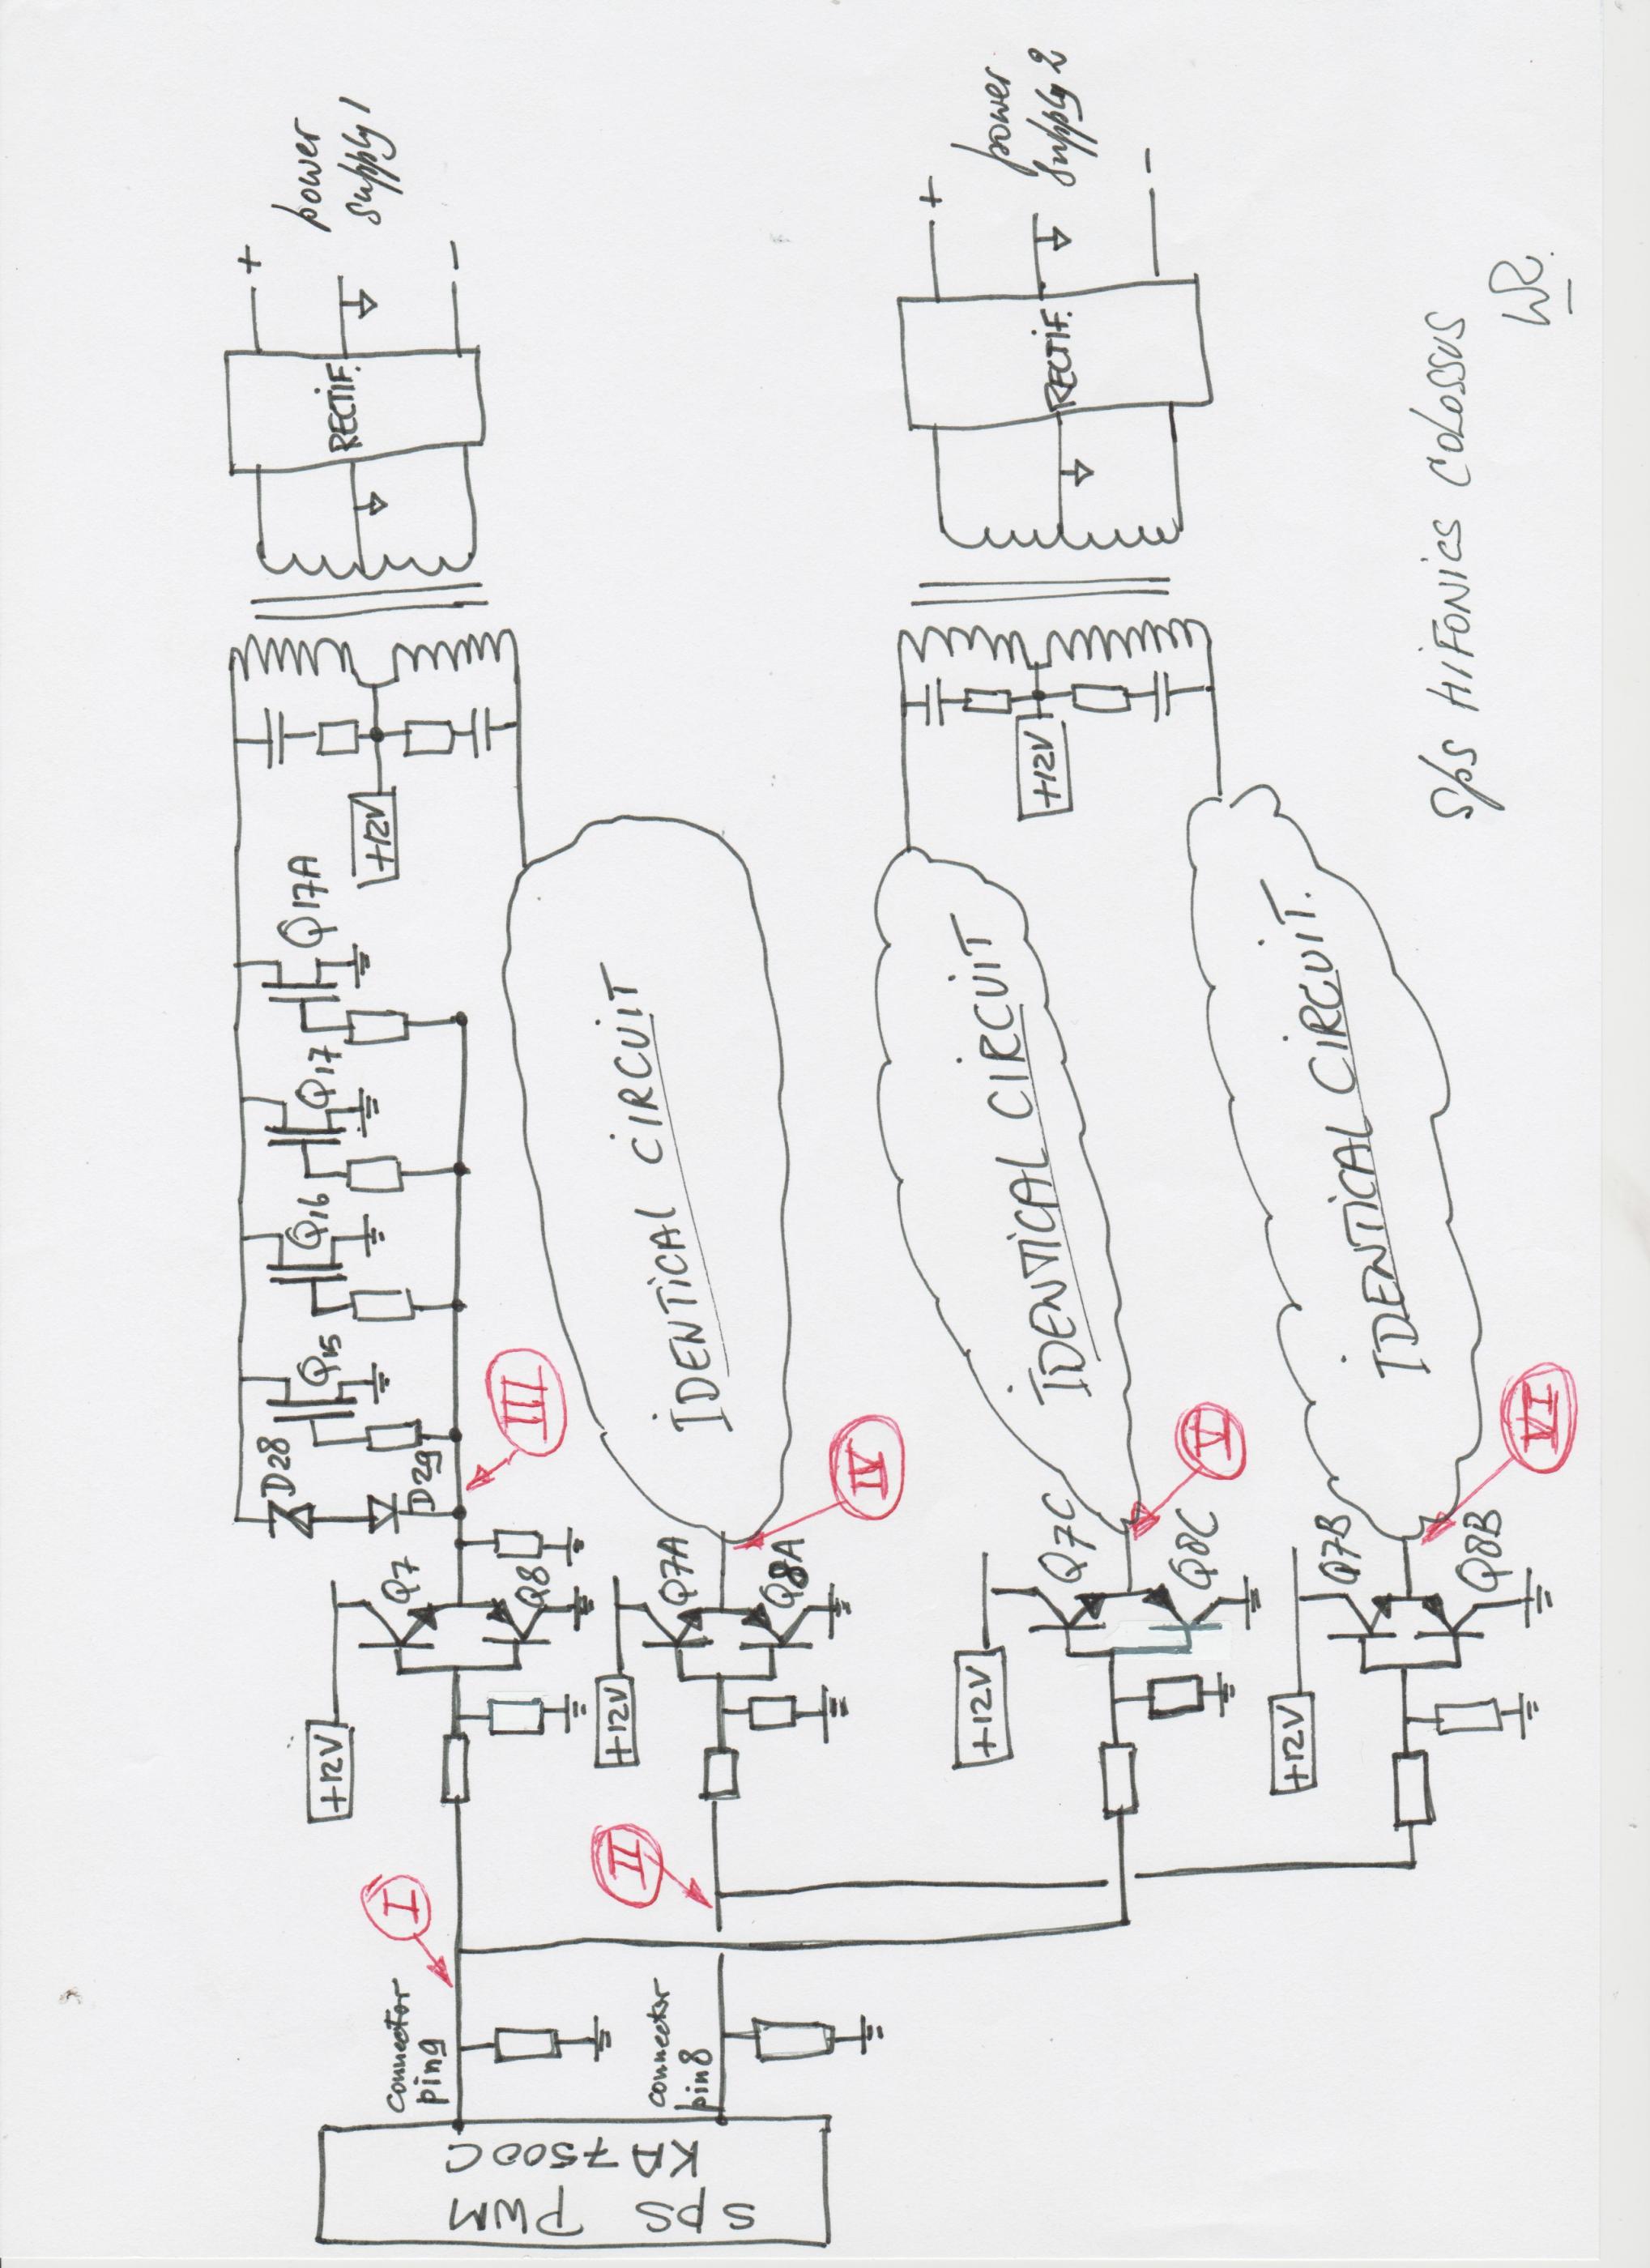 SPS
PWM
KA7500C
connector
pin9
connector
pin8
I
II
+12V
+12V
+12V
+12V
Q7
Q8
Q7A
Q8A
Q7C
Q8C
Q7B
Q8B
D28
D29
III
IV
V
VI
Q15
Q16
Q17
Q17A
IDENTICAL CIRCUIT
IDENTICAL CIRCUIT
IDENTICAL CIRCUIT.
+12V
+12V
RECTIF.
RECTIF.
+
-
+
-
power
supply 1
power
supply 2
SPS HIFONICS COLOSSUS